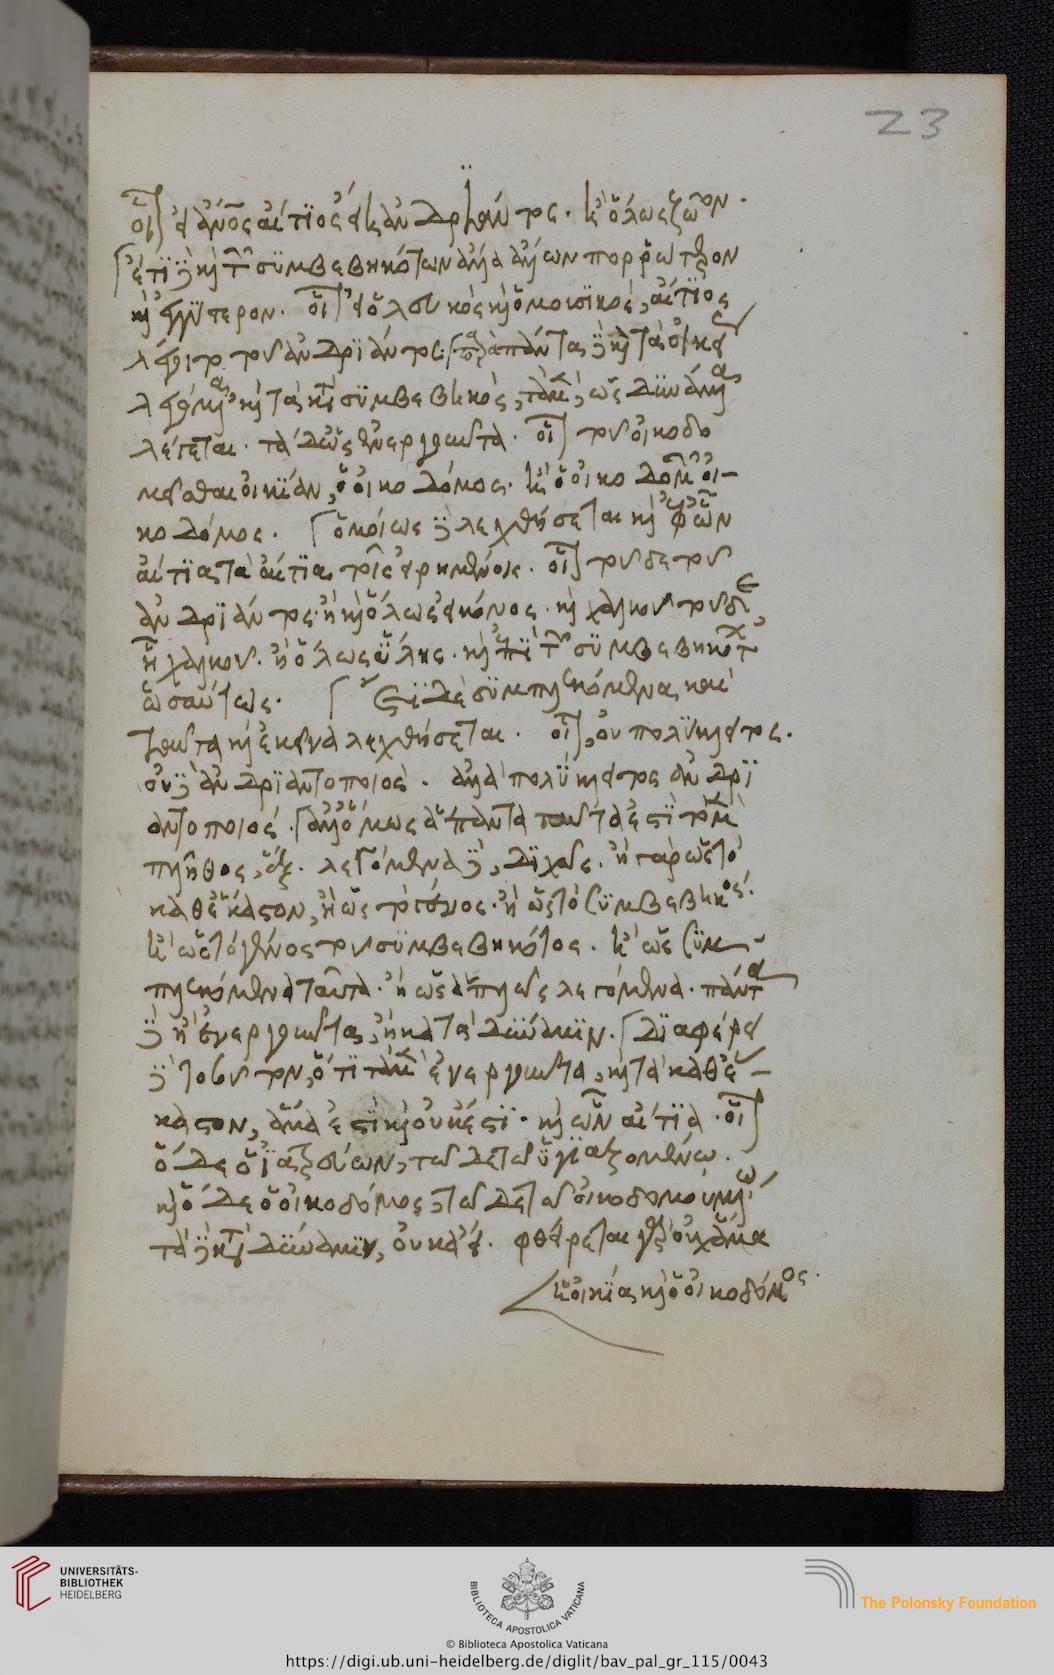 23
οἷον εἰ ἄνος αἴτιος εἴη ἀνδριάντος. ἢ ὅλως ζῷον.
ἔτι δὲ καὶ τῶν συμβεβηκότων ἄλλα ἄλλων πορρώτερον
καὶ ἐγγύτερον. οἷον εἰ ὁ λευκὸς καὶ ὁ μουσικὸς, αἴτιος
λέγοιτο τοῦ ἀνδριάντος. παρὰ πάντα δὲ καὶ τὰ οἰκεί
λεγόμενα, καὶ τὰ κατὰ συμβεβηκὸς, τὰ μὲν, ὡς δυνάμενα
λέγεται. τὰ δ' ὡς ἐνεργοῦντα. οἷον τοῦ οἰκοδο
μεῖσθαι οἰκίαν, ὁ οἰκοδόμος. ἢ ὁ οἰκοδομῶν οἰ-
κοδόμος. ὁμοίως δὲ λεχθήσεται καὶ ἐφ' ὧν
αἴτια τὰ αἴτια τοῖς εἰρημένοις. οἷον τοῦδε τοῦ
ἀνδριάντος. ἢ καὶ ὅλως εἰκόνος. καὶ χαλκοῦ τοῦδε,
ἢ χαλκοῦ. ἢ ὅλως ὕλης. καὶ ἐπὶ τῶν συμβεβηκότ
ὡσαύτως. ἔτι δὲ συμπλεκόμενα καὶ
ταῦτα κἀκεῖνα λεχθήσεται. οἷον, οὐ πολύκλειτος.
οὐδὲ ἀνδριαντοποιὸς. ἀλλὰ πολύκλειτος ἀνδρι
αντοποιός. ἀλλ' ὅμως ἅπαντα ταῦτα ἐστὶ τὸ μὲν
πλῆθος, ἕξ. λεγόμενα δὲ, διχῶς. ἢ γὰρ ὡς τὸ
καθέκαστον, ἢ ὡς τὸ γένος. ἢ ὡς τὸ συμβεβηκός.
ἢ ὡς τὸ γένος τοῦ συμβεβηκότος. ἢ ὡς συμ-
πλεκόμενα ταῦτα. ἢ ὡς ἁπλῶς λεγόμενα. πάντα
δὲ ἢ ἐνεργοῦντα, ἢ κατὰ δύναμιν. διαφέρει
δὲ τοσοῦτον, ὅτι τὰ μὲν ἐνεργοῦντα, καὶ τὰ καθέ-
καστον, ἅμα ἐστὶ καὶ οὐκ ἔστι. καὶ ὧν αἴτια. οἷον
ὅδε ὁ ἰατρεύων, τῷδε τῷ ὑγιαζομένῳ.
καὶ ὅδε ὁ οἰκοδόμος, τῷδε τῷ οἰκοδομουμένῳ
τὰ δὲ κατὰ δύναμιν, οὐκ ἀεί. φθείρεται γὰρ οὐχ ἅμα
ἡ οἰκία καὶ ὁ οἰκοδόμος.
UNIVERSITÄTS-
BIBLIOTHEK
HEIDELBERG
BIBLIOTECA APOSTOLICA VATICANA
The Polonsky Foundation
© Biblioteca Apostolica Vaticana
https://digi.ub.uni-heidelberg.de/diglit/bav_pal_gr_115/0043